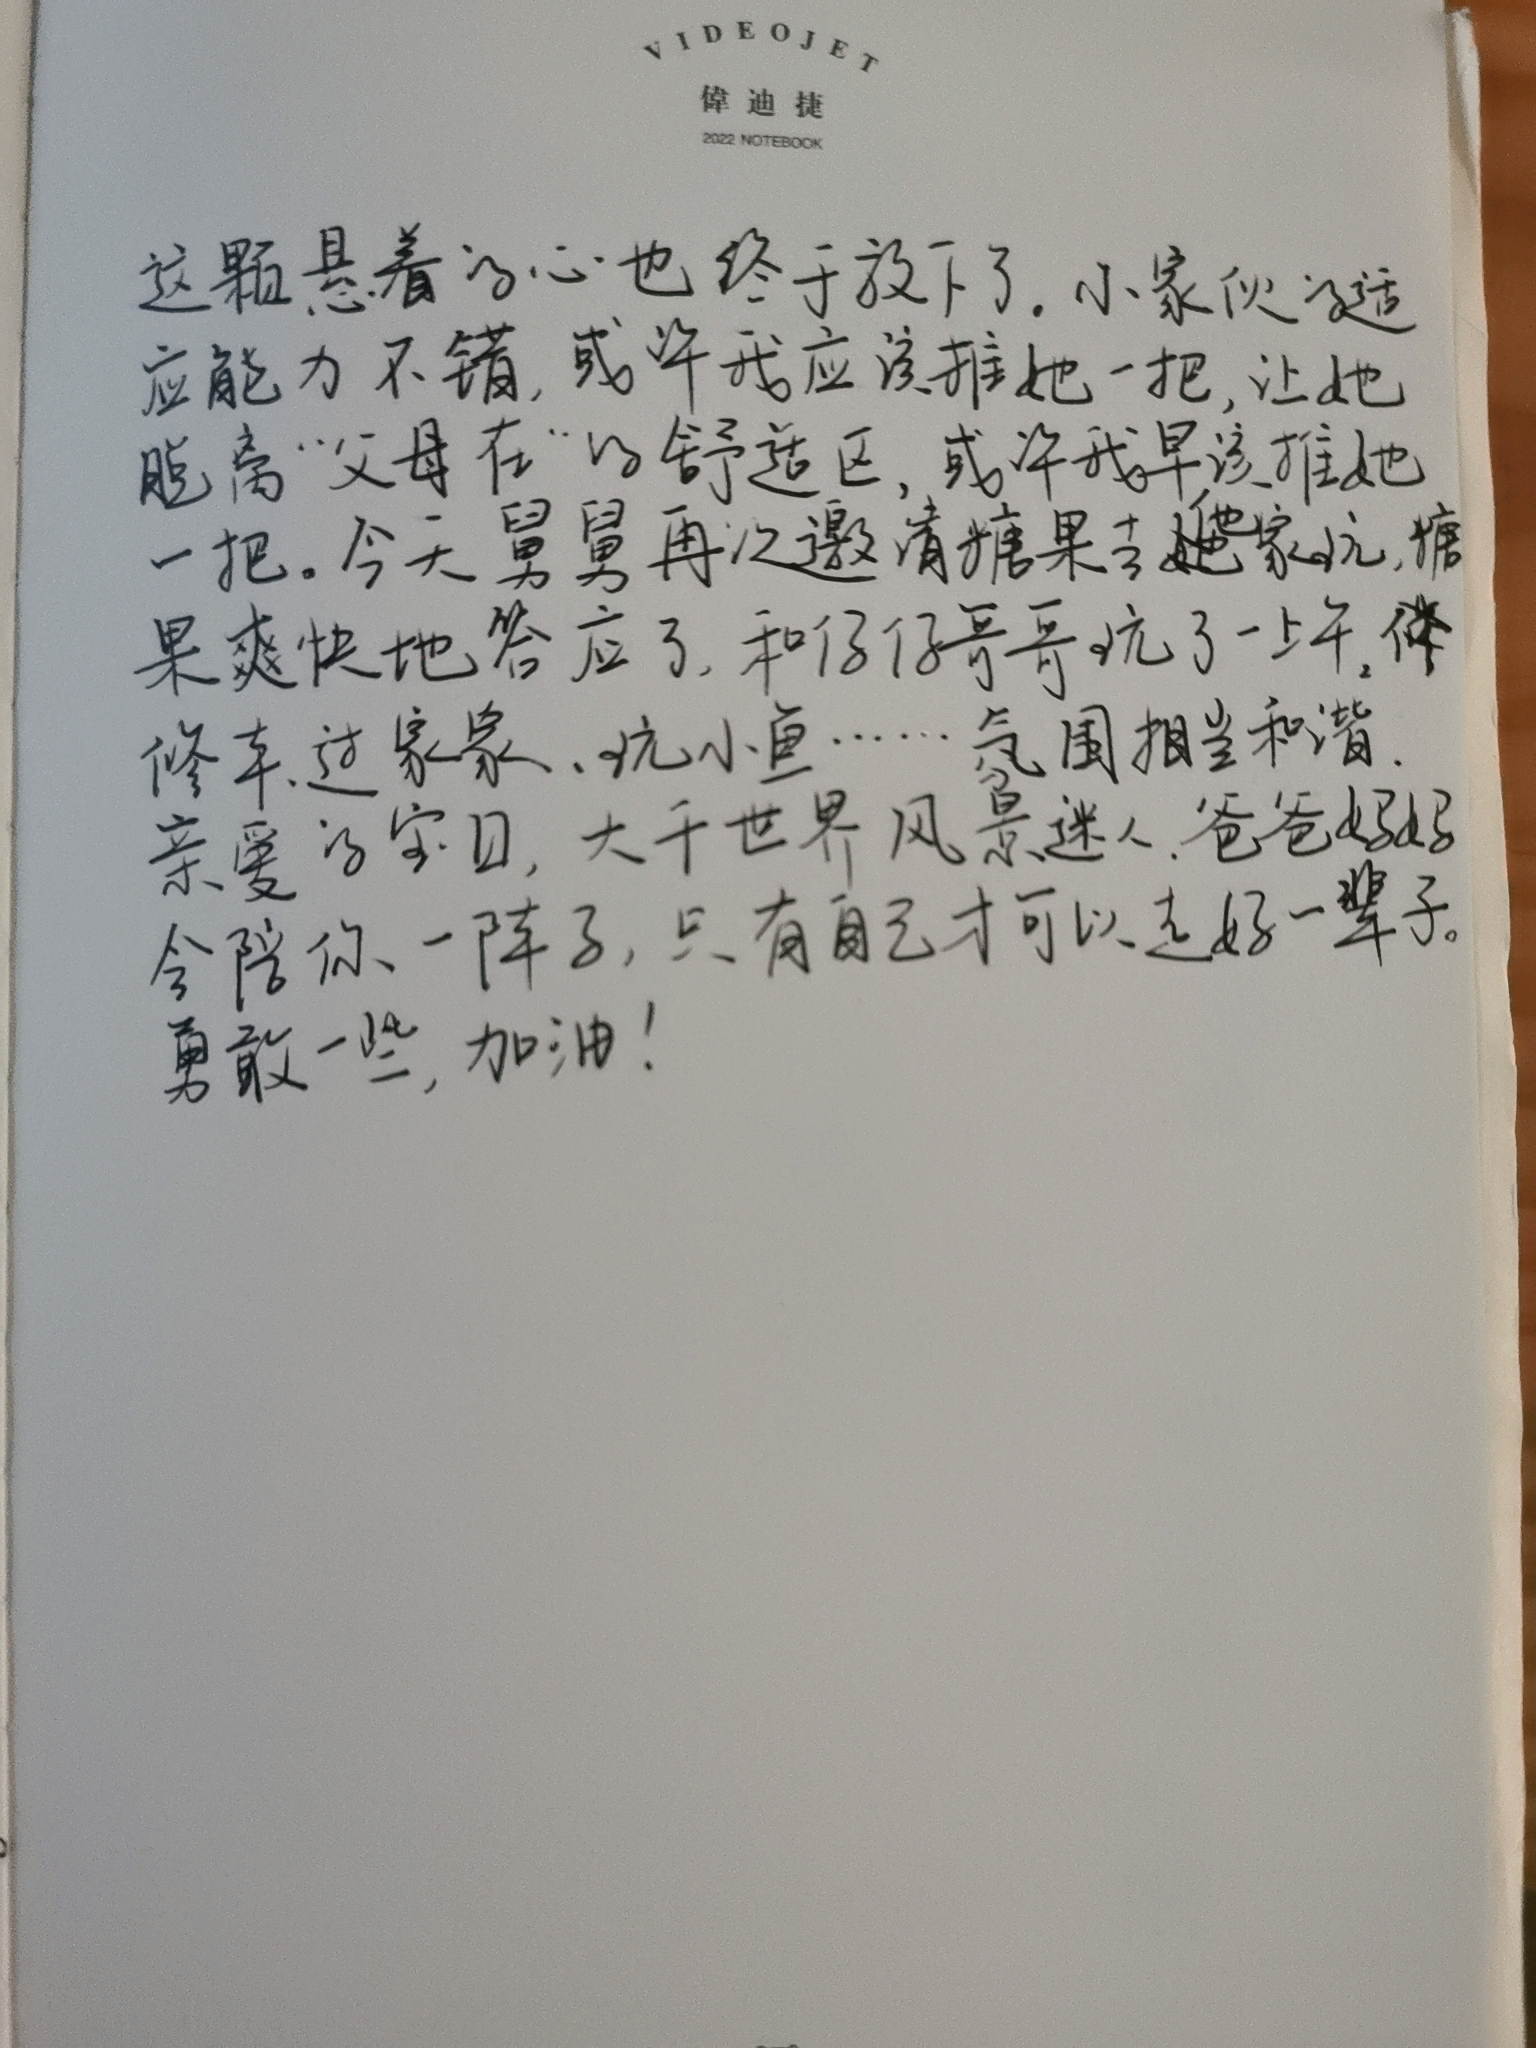 VIDEOJET
偉迪捷
2022 NOTEBOOK
这颗悬着的心也终于放下了。小家伙的适
应能力不错，或许我应该推她一把，让她
脱离“父母在”的舒适区，或许我早该推她
一把。今天舅舅再次邀请糖果去他家玩，糖
果爽快地答应了，和仔仔哥哥玩了一上午，
修车、过家家、玩小鱼……氛围相当和谐.
亲爱的宝贝，大千世界风景迷人.爸爸妈妈
会陪你一阵子，只有自己才可以走好一辈子。
勇敢一些，加油！